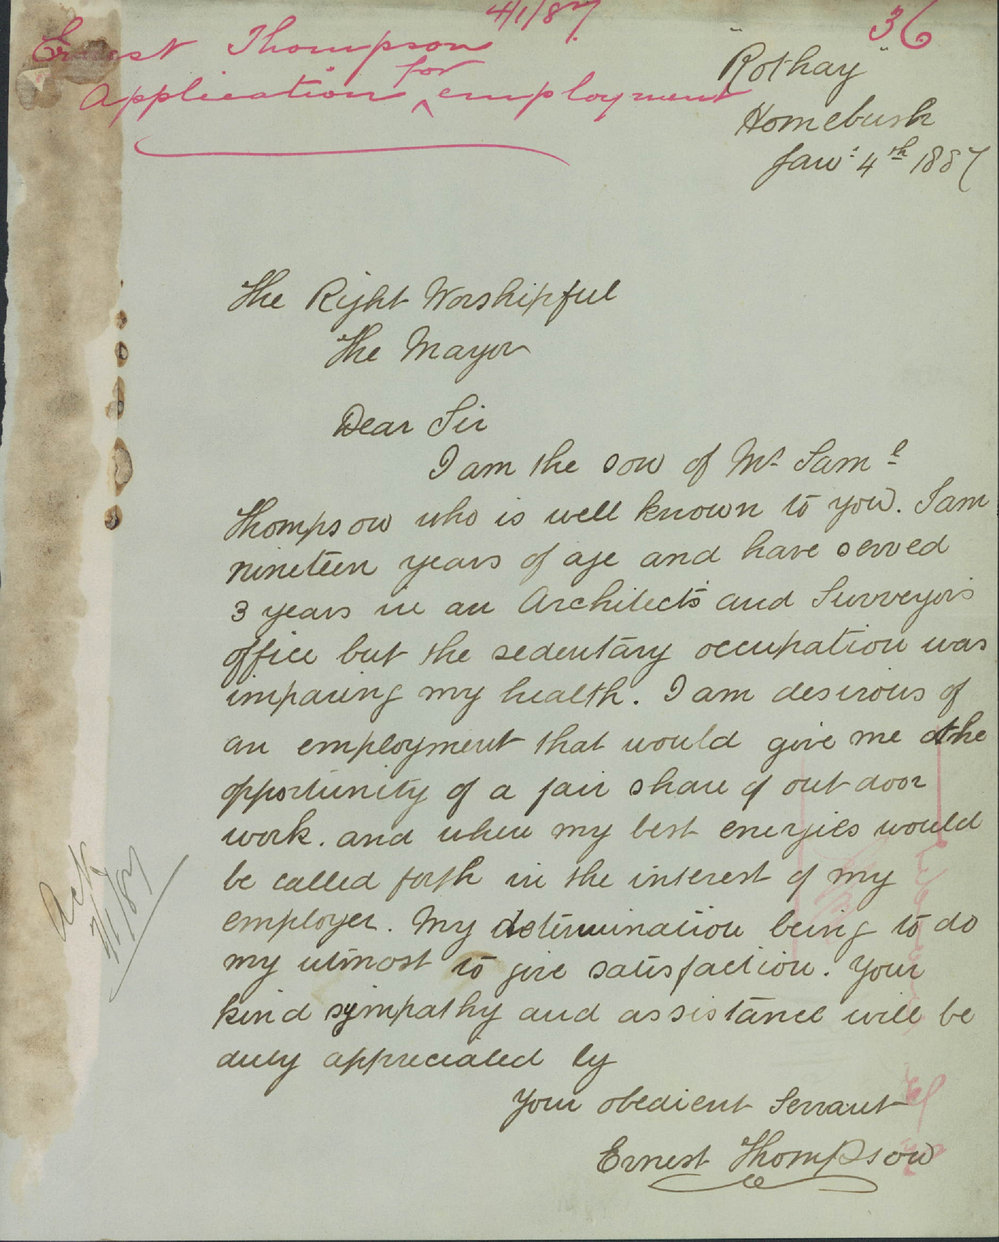 4/1/87.
36
Ernest Thompson
Application for employment
"Rothay"
Homebush
Jan: 4th 1887
The Right Worshipful
The Mayor
Dear Sir
I am the son of Mr Saml
Thompson who is well known to you. I am
nineteen years of age and have served
3 years in an Architect's and Surveyors
office but the sedentary occupation was
imparing my health. I am desirous of
an employment that would give me the
opportunity of a fair share of out door
work. and where my best energies would
be called forth in the interest of my
employer. My determination being to do
my utmost to give satisfaction. Your
kind sympathy and assistance will be
duly appreciated by
Your obedient Servant
Ernest Thompson